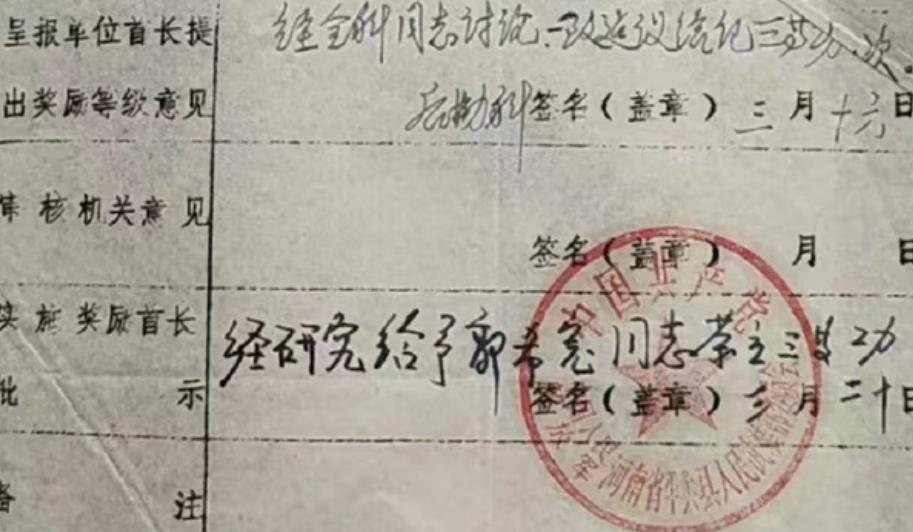 呈报单位首长提
出奖励等级意见
经全科同志讨论，一致建议给记三等功一次。
后勤科签名（盖章）三月十六日
审核机关意见
签名（盖章） 月 日
实施奖励首长
批 示
经研究给予郭同志荣立三等功
签名（盖章）三月二十日
备 注
中国共产党
河南省平舆县人民武装部